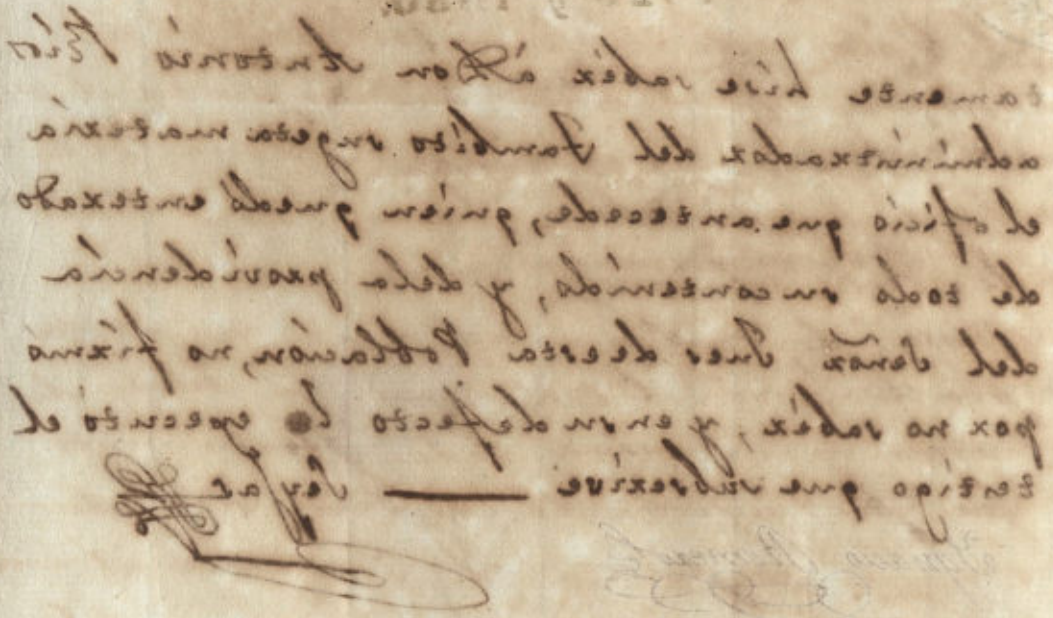 tamente hise saber à Don Antonio Rios
administrador del Tambito sugeta materia
el oficio que antecede, quien quedó enterado
de todo su contenido, y dela providencia
del Señor Jues de esta Poblacion, no firmó
por no saber, y ensu defecto lo egecutó el
testigo que subscrive